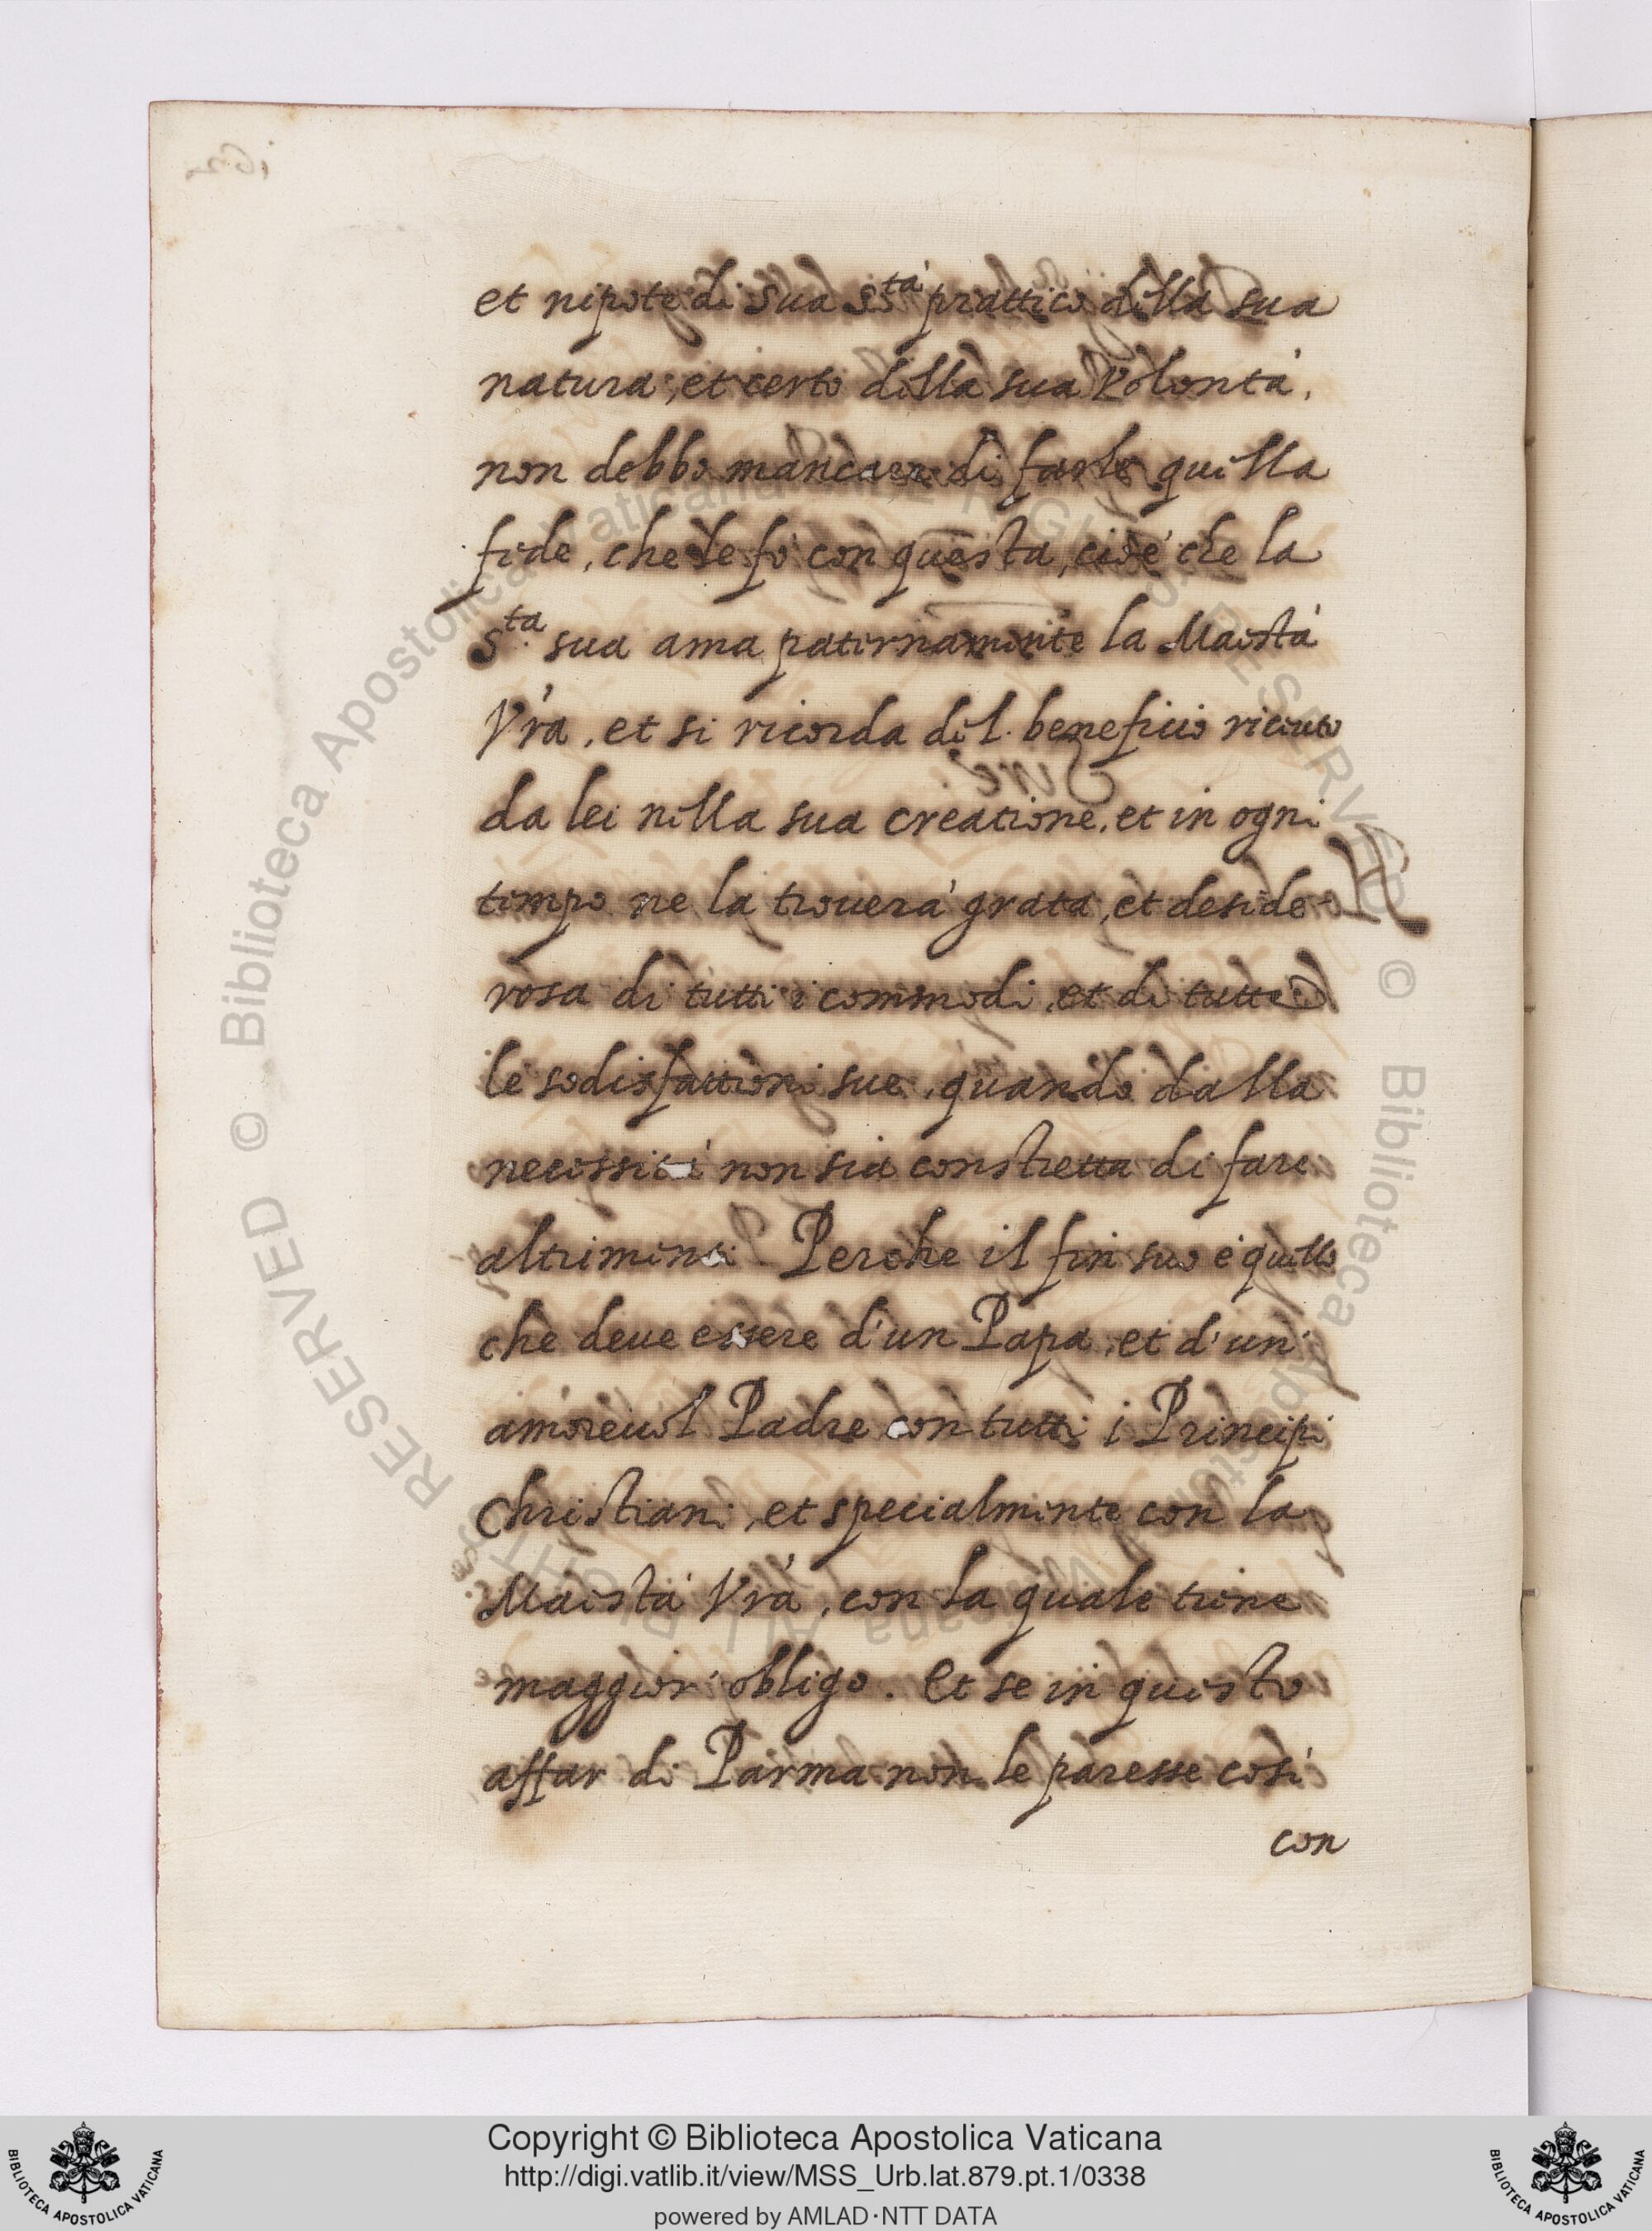 et nipote di sua S.tà prattico della sua
natura, et certo della sua Volontà,
non debbo mancare di farle quella
fede, che le fo con questa, cioè che la
S.ta sua ama paternamente la Maestà
Vr̃a, et si ricorda del beneficio riceuto
da lei nella sua creatione, et in ogni
tempo ne la trouerà grata, et deside-
rosa di tutti i commodi, et di tutte
le sodisfattioni sue, quando dalla
necessità non sia constretta di fare
altrimenti. Perche il fin suo è quello
che deue essere d'un Papa, et d'un
amoreuol Padre con tutti i Principi
Christiani, et specialmente con la
Maestà Vr̃a, con la quale tiene
maggior obligo. Et se in questo
affar di Parma non le paresse così
con
Copyright © Biblioteca Apostolica Vaticana
http://digi.vatlib.it/view/MSS_Urb.lat.879.pt.1/0338
powered by AMLAD·NTT DATA
BIBLIOTECA APOSTOLICA VATICANA
BIBLIOTECA APOSTOLICA VATICANA